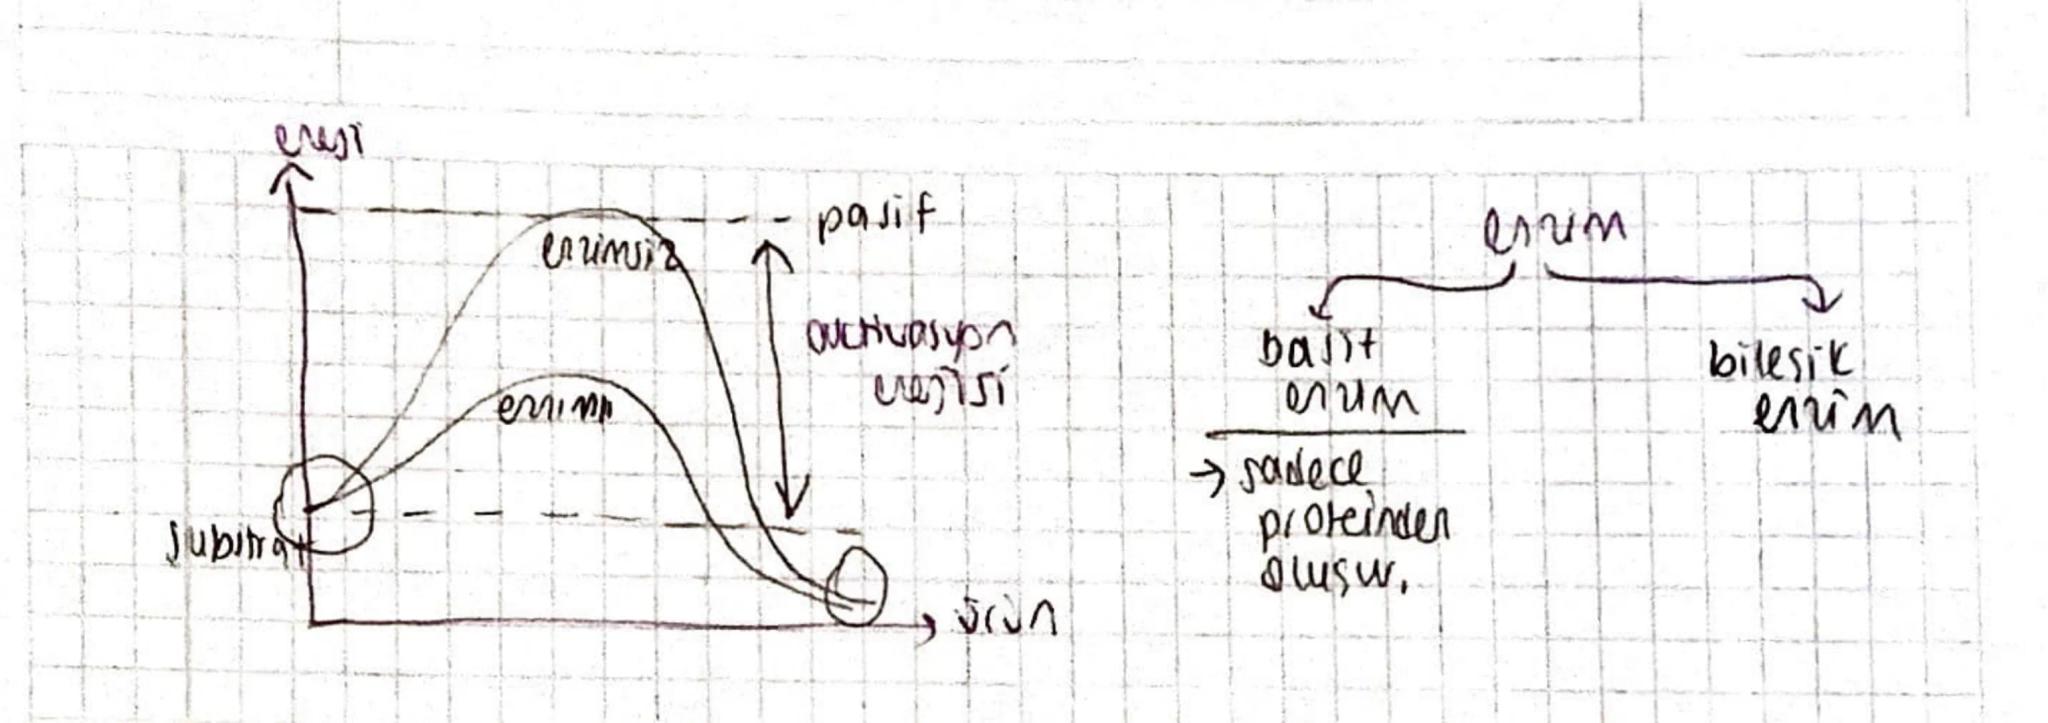 enerji
pasif
enzimsiz
aktivasyon
enerjisi
enzimli
substrat
ürün
enzim
basit
enzim
bileşik
enzim
→ sadece
proteinden
oluşur.